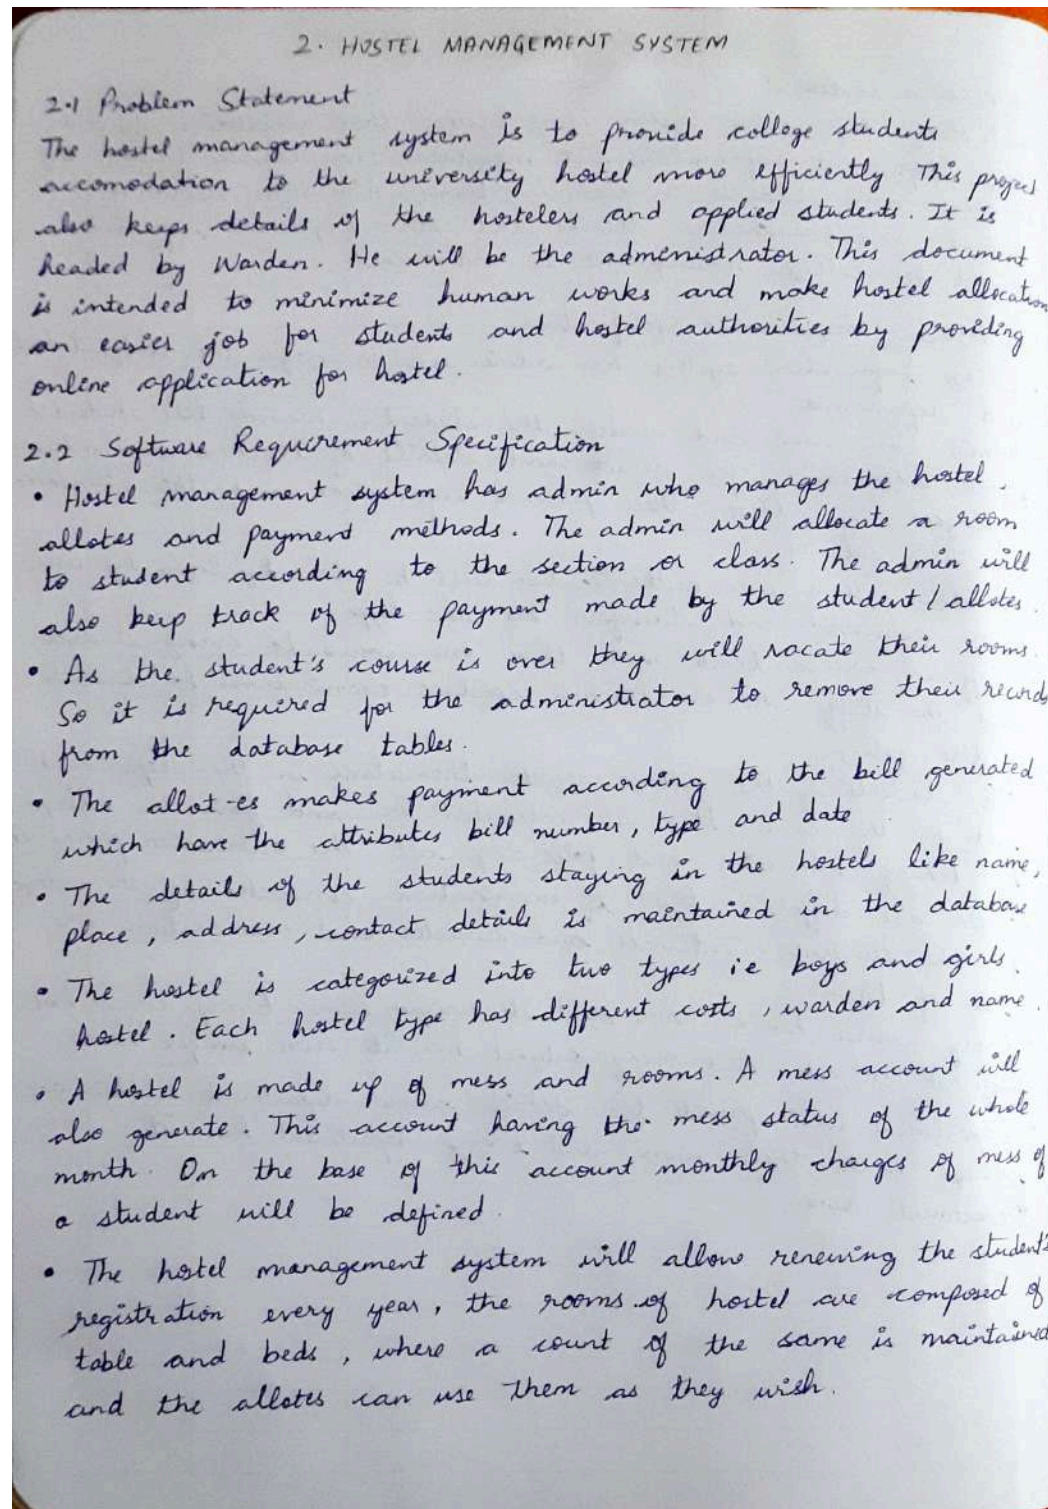 2. HOSTEL MANAGEMENT SYSTEM
2.1 Problem Statement
The hostel management system is to provide college students
accomodation to the university hostel more efficiently This project
also keeps details of the hostelers and applied students. It is
headed by Warden. He will be the administrator. This document
is intended to minimize human works and make hostel allocation
an easier job for students and hostel authorities by providing
online application for hostel.
2.2 Software Requirement Specification
• Hostel management system has admin who manages the hostel,
allotes and payment methods. The admin will allocate a room
to student according to the section or class. The admin will
also keep track of the payment made by the student / allotes.
• As the student's course is over they will vacate their rooms.
So it is required for the administrator to remove their records
from the database tables.
• The allot-es makes payment according to the bill generated
which have the attributes bill number, type and date
• The details of the students staying in the hostels like name,
place, address, contact details is maintained in the database
• The hostel is categorized into two types i e boys and girls
hostel. Each hostel type has different costs, warden and name.
• A hostel is made up of mess and rooms. A mess account will
also generate. This account having the mess status of the whole
month. On the base of this account monthly charges of mess of
a student will be defined.
• The hostel management system will allow renewing the student's
registration every year, the rooms of hostel are composed of
table and beds, where a count of the same is maintained
and the allotes can use them as they wish.